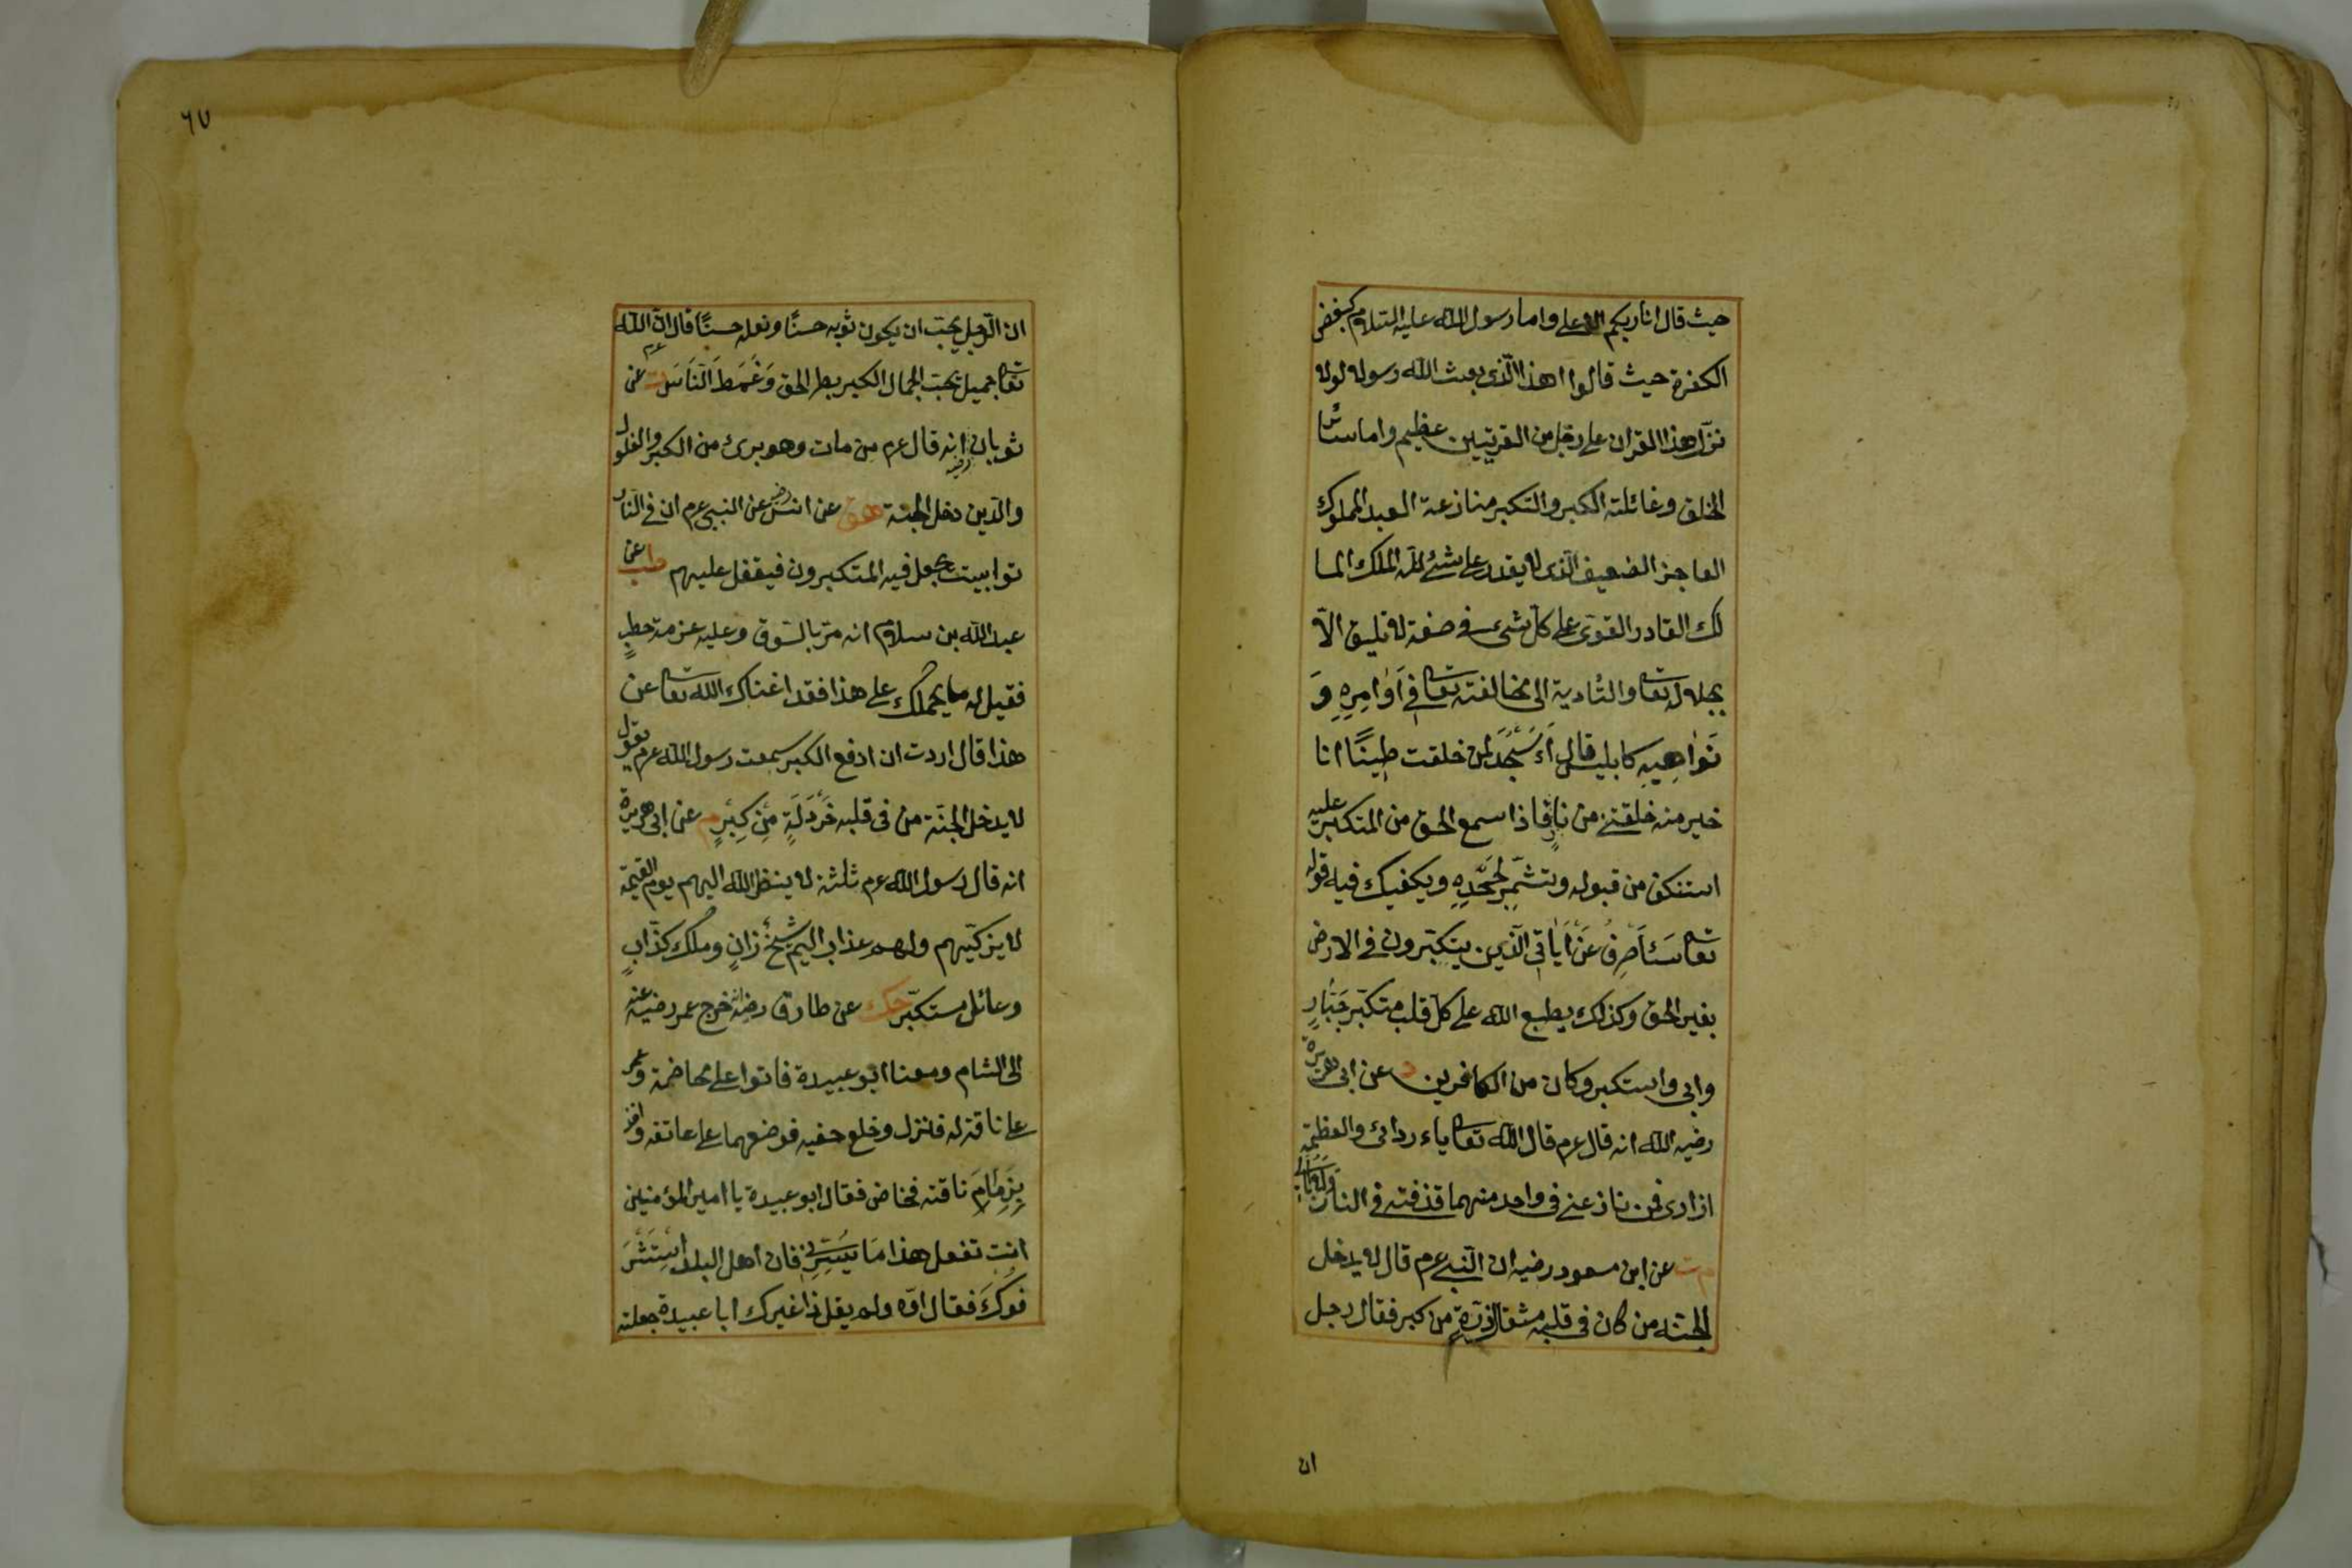 حيث قال انا ربكم الاعلى واما رسول الله عليه السلام كبعض
الكفرة حيث قالوا اهذا الذى بعث الله رسولا لولا
نزل هذا القران على رجل من القريتين عظيم واما سائر
الخلق وغائلة الكبر والتكبر منازعة العبد المملوك
العاجز الضعيف الذى لا يقدر على شئ لله الملك الما
لك القادر القوى على كل شئ فى صفة لا تليق الا
بجلاله تعا والتأدية الى مخالفته تعا فى اَوَامِرِهِ وَ
نَوَاهِيهِ كابليس قال ءَاَسْجُدُ لمن خلقت طينًا انا
خير منه خلقتنى من نارٍ فاذا سمع الحق من المتكبر عليه
استنكف من قبوله وتشمّر لجَحْدِهِ ويكفيك فيه قوله
تعا سَاَصْرِفُ عَنْ اٰيَاتِىَ الَّذين يتكبّرون فى الارض
بغير الحق وكذلك يطبع الله على كل قلب متكبّر جَبَّارٍ
وابى واستكبر وكان من الكافرين د عن ابى هريرة
رضيه الله انه قال عم قال الله تعا ياء ردائى والعظمة
ازارى فمن نازعنى فى واحد منهما قذفته فى النار ولا ابالى
م ت عن ابن مسعود رضيه ان النبى عم قال لا يدخل
الجنة من كان فى قلبه مثقال ذرّةٍ من كبر فقال رجل
ان
٦٧
ان الرجل يحبّ ان يكون ثوبه حسنًا ونعله حسنًا قال انّ الله
تعا جميل يحبّ الجمال الكبر بطر الحق وَغَمَطَ النَّاسَ ت عن
ثوبان رضيه انه قال عم من مات وهو برئ من الكبر والغلول
والدّين دخل الجنة هق عن انس رضيه عن النبى عم ان فى النار
توابيت يجعل فيه المتكبرون فيقفل عليهم طب عن
عبد الله بن سلام انه مرّ بالسّوق وعليه حزمة حطبٍ
فقيل له ما يحملك على هذا فقد اغناك الله تعا عن
هذا قال اردت ان ادفع الكبر سمعت رسول الله عم يقول
لا يدخل الجنّة من فى قلبه خَرْدَلَةٍ مِنْ كِبْرٍ م عن ابى هريرة
انه قال رسول الله عم ثلثة لا ينظر الله اليهم يوم القيمة
لا يزكّيهم ولهم عذاب اليم شيخ زانٍ وملك كذّابٍ
وعائل مستكبّر حك عن طارق رضيه خرج عمر رضيه عنه
الى الشام ومعنا ابو عبيدة فاتوا على مخاضة وعمر
على ناقة له فنزل وخلع خفيه فوضعهما على عاتقه واخذ
بِزِمَامِ ناقته فخاض فقال ابو عبيدة يا امير المؤمنين
انت تفعل هذا مَا يَسُرُّنِى فان اهل البلد اسْتَشْرَ
فُوكَ فقال اوّه ولم يقل ذا غيرك ابا عبيدة جعلته